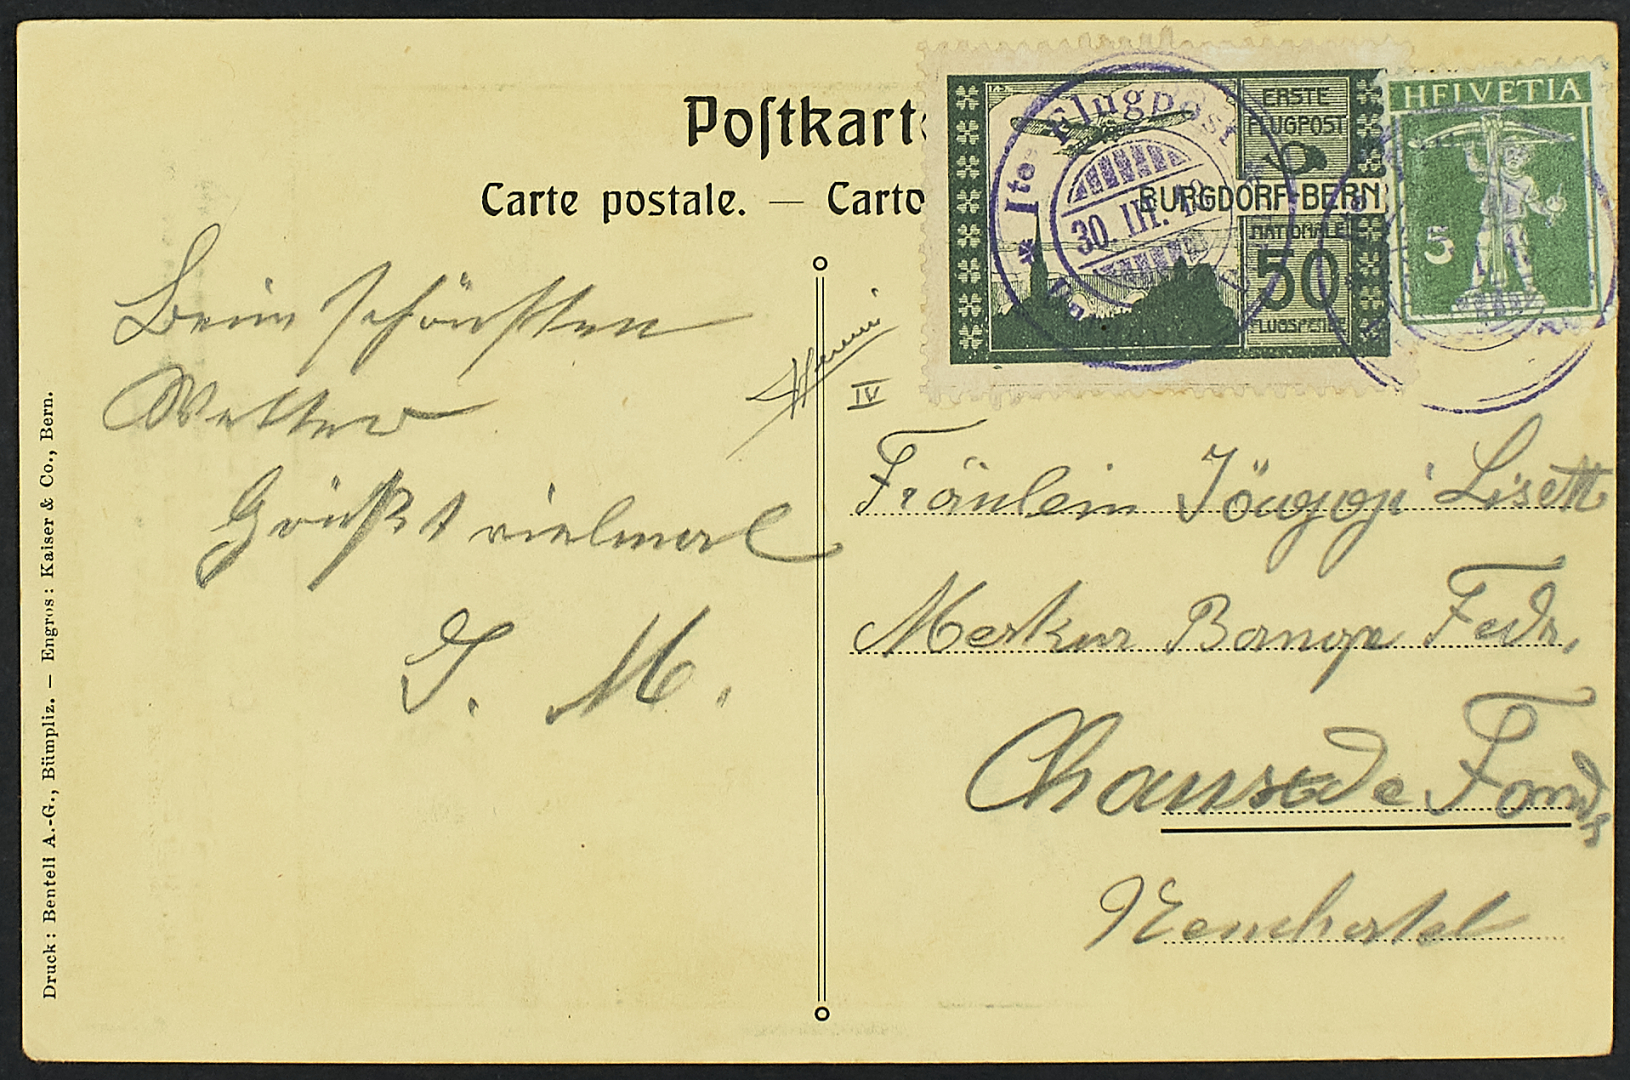 Postkart
Carte postale. — Carto
ERSTE
FLUGPOST
BURGDORF-BERN
NATIONALE
50
FLUGSPENDE
Ite Flugpost
30. III. 13
HELVETIA
5
Beim schönsten
Wetter
Grüßt vielmal
J. M.
IV
Fräulein Jöuggi Lisett
Merkur Banque Fedr.
Chauxde Fonds
Neuchatel
Druck: Benteli A.-G., Bümpliz. — Engros: Kaiser & Co., Bern.